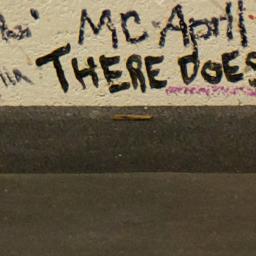 MC April
THERE DOES